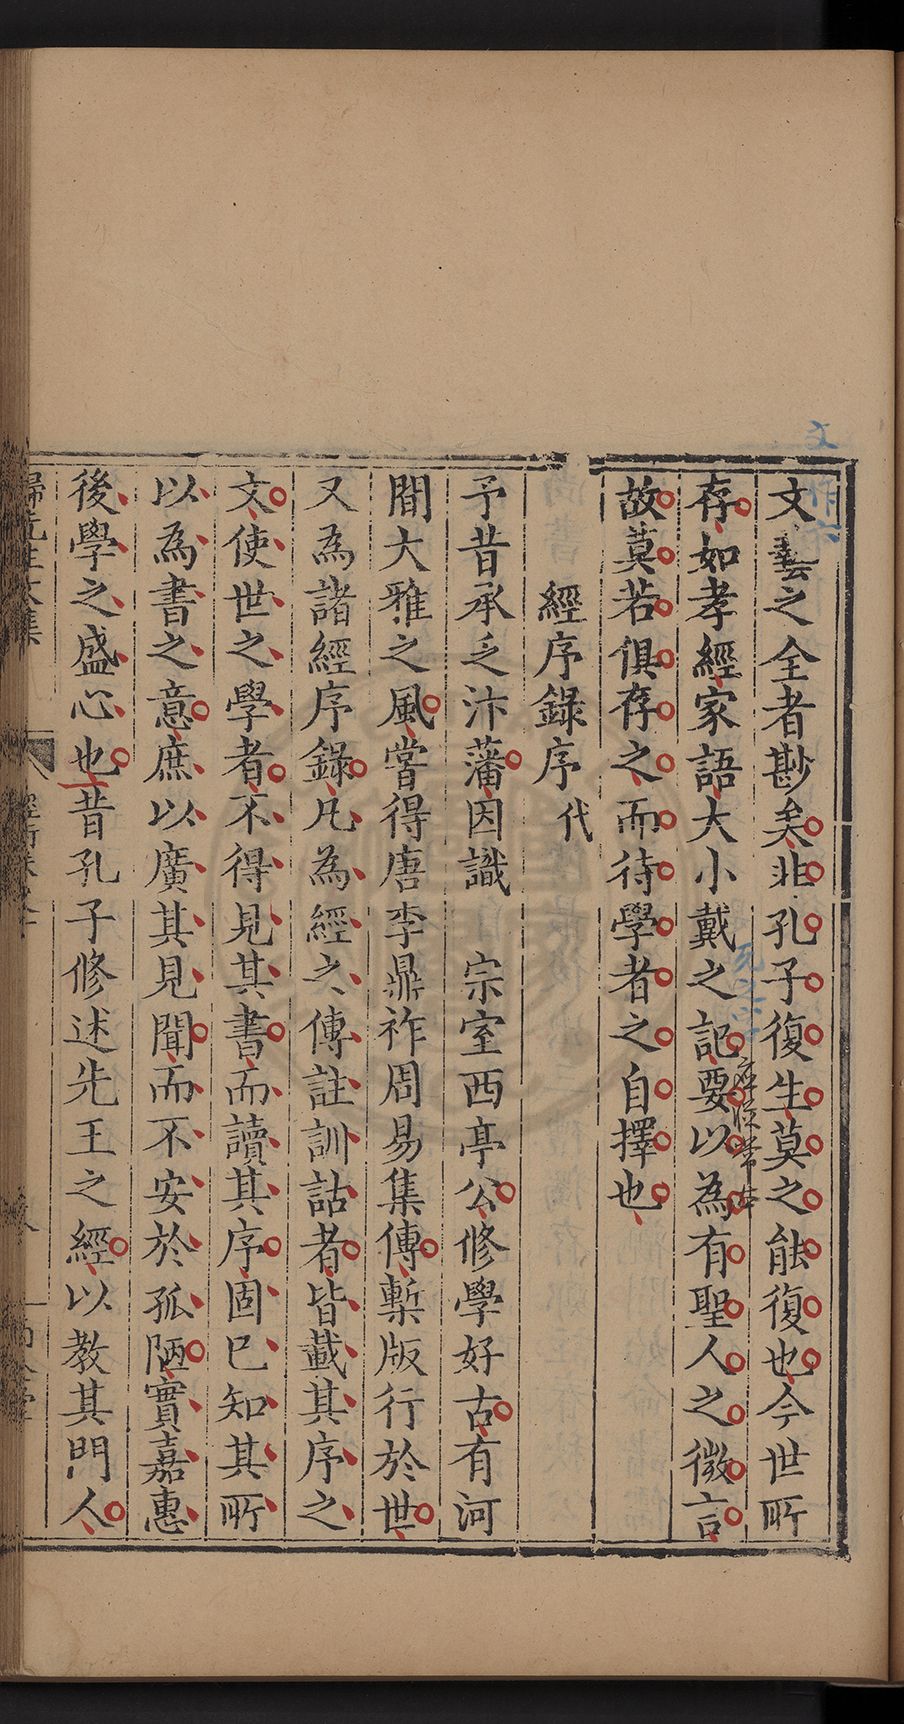 文藝之全者尠矣非孔子復生莫之能復也今世所
存如孝經家語大小戴之記要以為有聖人之微言
故莫若俱存之而待學者之自擇也
經序錄序代
予昔承乏汴藩因識　宗室西亭公修學好古有河
間大雅之風嘗得唐李鼎祚周易集傳槧版行於世
又為諸經序錄凡為經之傳註訓詁者皆載其序之
文使世之學者不得見其書而讀其序固已知其所
以為書之意庶以廣其見聞而不安於孤陋實嘉惠
後學之盛心也昔孔子修述先王之經以教其門人